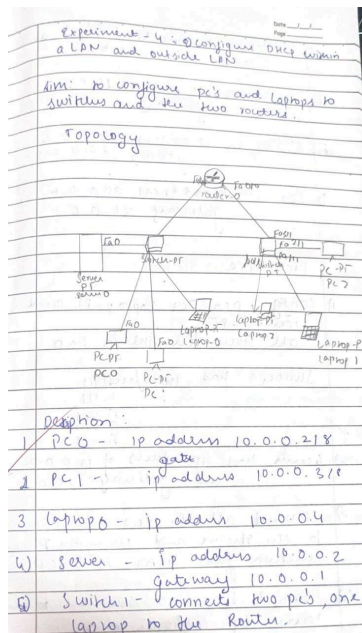 Date __/__/__
Page
Experiment - 4 : ① configure DHCP within
a LAN and outside LAN
Aim: to configure pc's and laptops to
switches and the two routers.
Topology
Fa0/0
router0
Fa0
Switch-PT
Fa0/1
Fa2/1
Switch
PT
PC-PT
PC2
Server
PT
Server0
Laptop-PT
Laptop-0
Laptop-PT
Laptop 2
Laptop-P
Laptop 1
Fa0
PC-PT
PC0
Fa0
PC-PT
PC1
Desription :
1 PC0 - ip address 10.0.0.2/8
gate
2 PC1 - ip address 10.0.0.3/8
3 laptop0 - ip address 10.0.0.4
4) Server - ip address 10.0.0.2
Gateway 10.0.0.1
5) Switch1 - connects two pc's, one
laptop to the Router.